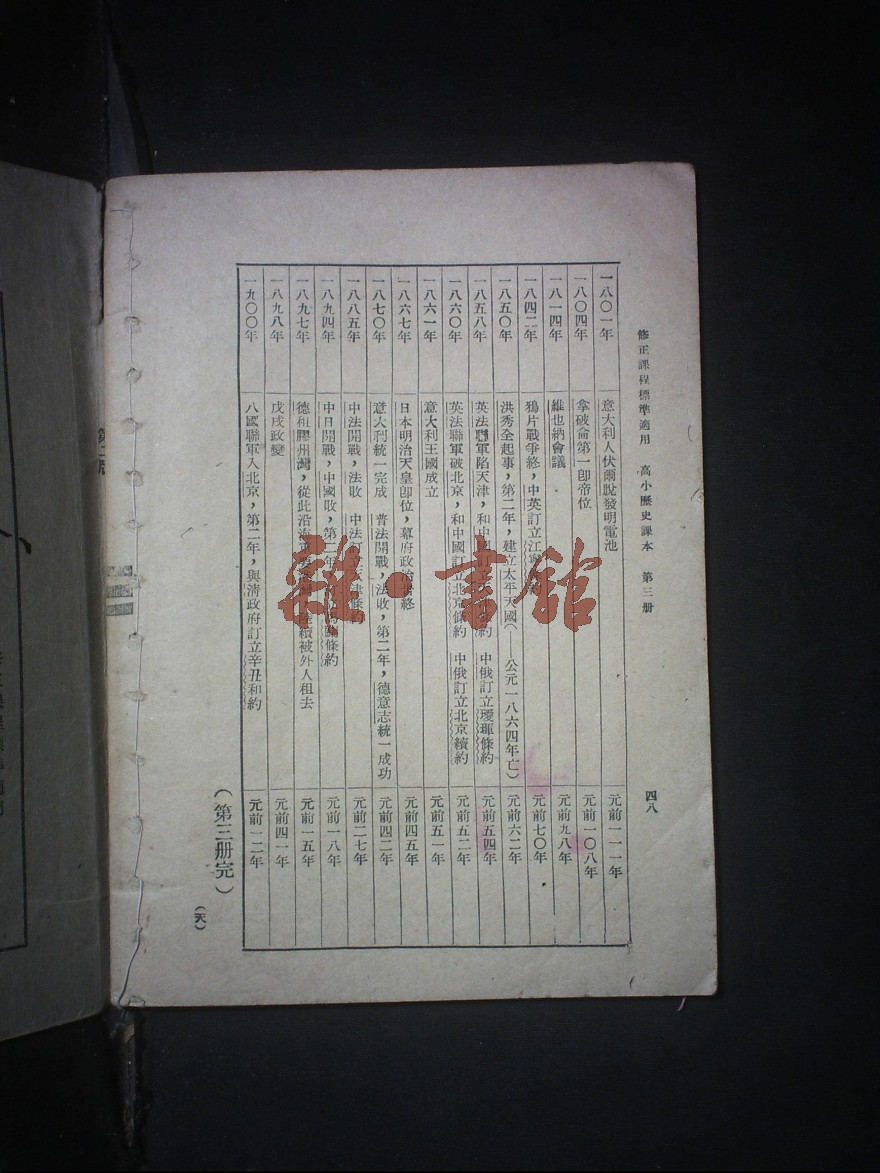 修正課程標準適用 高小歷史課本 第三册
四八
一八〇一年 意大利人伏爾脫發明電池 元前一一一年
一八〇四年 拿破侖第一卽帝位 元前一〇八年
一八一四年 維也納會議 元前九八年
一八四二年 鴉片戰爭終，中英訂立江寧 元前七〇年
一八五〇年 洪秀全起事，第二年，建立太平天國（——公元一八六四年亡） 元前六二年
一八五八年 英法聯軍陷天津，和中國訂立天 條約 中俄訂立璦琿條約 元前五四年
一八六〇年 英法聯軍破北京，和中國訂立北京條約 中俄訂立北京續約 元前五二年
一八六一年 意大利王國成立 元前五一年
一八六七年 日本明治天皇卽位，幕府政治 終 元前四五年
一八七〇年 意大利統一完成 普法開戰，法敗，第二年，德意志統一成功 元前四二年
一八八五年 中法開戰，法敗 中法訂立天津條約 元前二七年
一八九四年 中日開戰，中國敗，第二年， 條約 元前一八年
一八九七年 德租膠州灣，從此沿海 陸續被外人租去 元前一五年
一八九八年 戊戌政變 元前四一年
一九〇〇年 八國聯軍入北京，第二年，與清政府訂立辛丑和約 元前一二年
（第三册完）
（天）
雜·書館